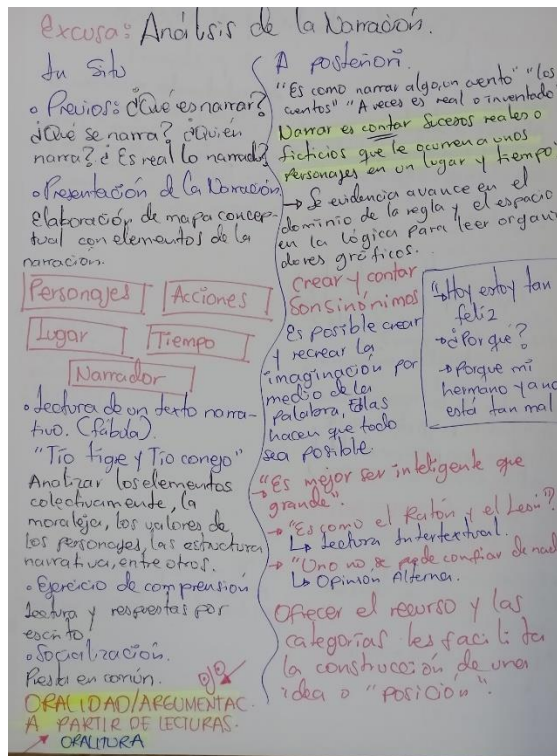 Excusa: Análisis de la Narración.
In Situ
• Previos: ¿Qué es narrar?
¿Qué se narra? ¿Quién
narra? ¿Es real lo narrado?
• Presentación de la Narración
elaboración de mapa concep-
tual con elementos de la
narración.
Personajes
Acciones
Lugar
Tiempo
Narrador
• Lectura de un texto narra-
tivo. (fábula).
"Tío tigre y Tío conejo"
Analizar los elementos
colectivamente, la
moraleja, los valores de
los personajes, las estructura
narrativa, entre otros.
• Ejercicio de comprensión
lectura y respuestas por
escrito
• Socialización.
Puesta en común.
ORALIDAD/ARGUMENTAC.
A PARTIR DE LECTURAS.
ORALITURA
A posteriori.
"Es como narrar algo, un cuento" "los
cuentos" "A veces es real o inventado"
Narrar es contar sucesos reales o
ficticios que le ocurren a unos
personajes en un lugar y tiempo.
→ Se evidencia avance en el
dominio de la regla y el espacio
en la lógica para leer organi
dores gráficos.
Crear y contar
son sinónimos
Es posible crear
y recrear la
imaginación por
medio de la
palabra, ellas
hacen que todo
sea posible.
"Hoy estoy tan
feliz
→ ¿Por qué?
→ Porque mi
hermano ya no
está tan mal
→ "Es mejor ser inteligente que
grande".
→ "Es como el Ratón y el León"?
↳ Lectura Intertextual.
→ "Uno no se puede confiar de nad
↳ Opinión Alterna.
Ofrecer el recurso y las
categorías les facilita
la construcción de una
idea o "posición".